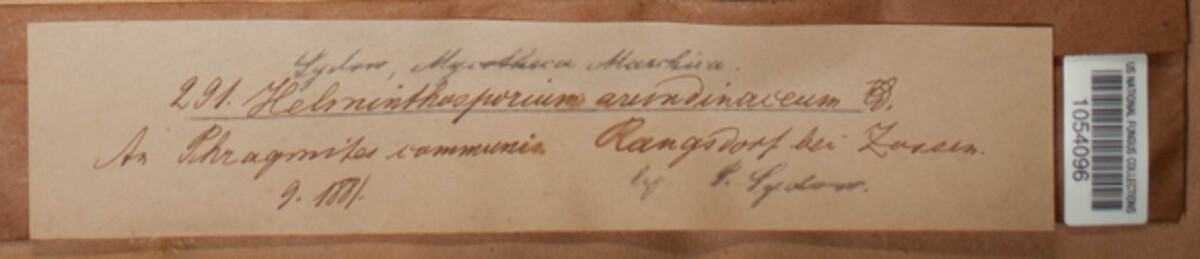 Sydow, Mycotheca Marchica.
291. Helminthosporium arundinaceum
An Phragmites communis Rangsdorf bei Zossen.
9. 1881.
leg P. Sydow.
US NATIONAL FUNGUS COLLECTIONS
1054096